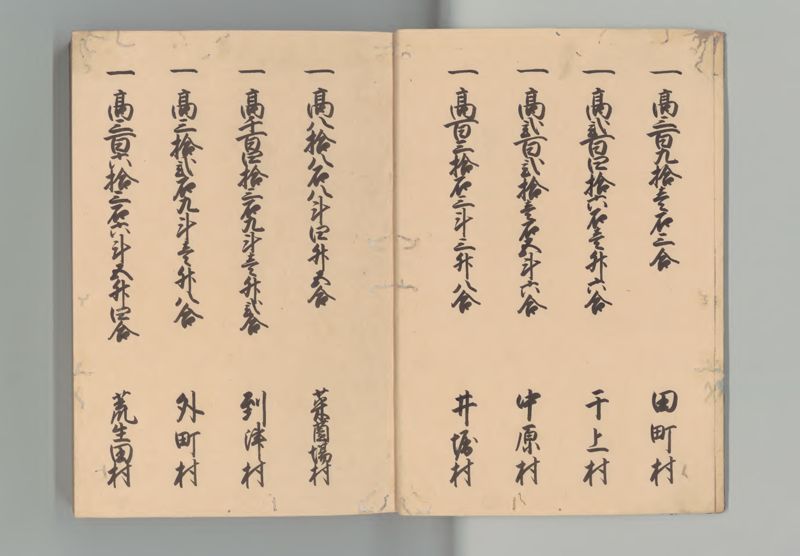 一 高三百九拾壱石三合 田町村
一 高弐百四拾六石壱升六合 干上村
一 高弐百弐拾壱石五斗六合 中原村
一 高百三拾石三斗三升八合 井堀村
一 高八拾八石八斗四升五合 菜園場村
一 高千百四拾三石九斗壱升弐合 到津村
一 高三拾弐石九斗壱升八合 外町村
一 高三百六拾三石六斗五升四合 荒生田村